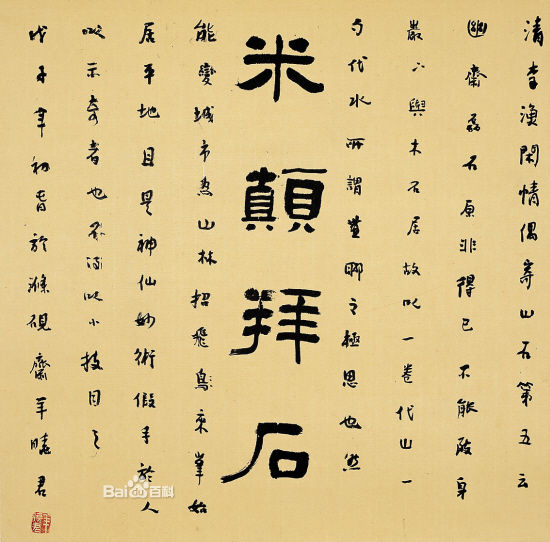 清李漁閑情偶寄山石第五云
幽齋磊石原非得已不能致身
巖下與木石居故以一卷代山一
勺代水所謂無聊之極思也然
米顛拜石
能變城市為山林招飛鳥來峯始
居平地且是神仙妙術假手於人
以示奇者也不得以小技目之
戊子年初春於滌硯齋羊曉君
Bai百科